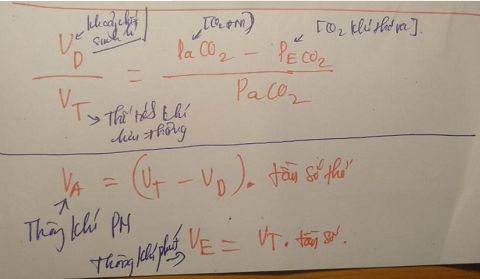 khoảng chết sinh lí [CO2 ĐM] [CO2 khí thở ra].
VD / VT = PaCO2 - PECO2 / PaCO2
Thể tích khí lưu thông
VA = (VT - VD). tần số thở
Thông khí PN
Thông khí phút VE = VT. tần số.